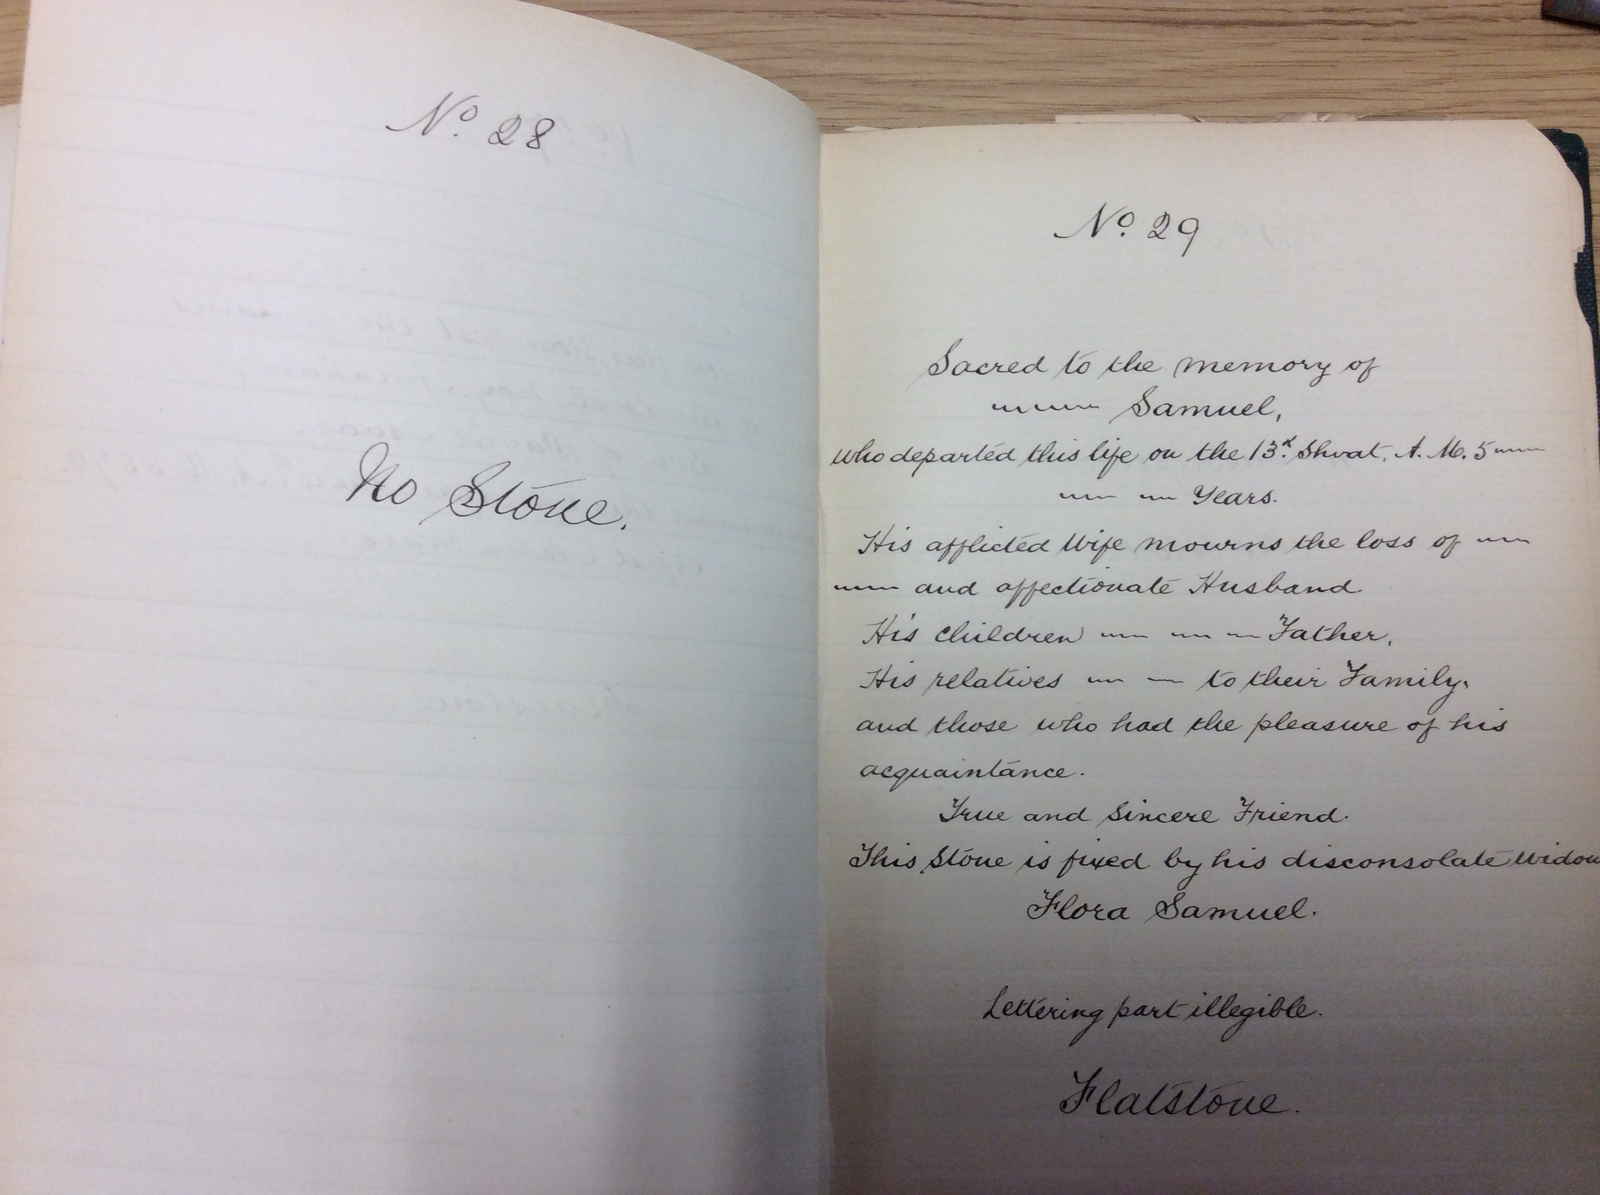 No. 28
No Stone.
No. 29
Sacred to the memory of
~~~~ Samuel,
who departed this life on the 13.d Shvat. A. M. 5~~~
~~~ ~~ Years.
His afflicted Wife mourns the loss of ~~~
~~~ and affectionate Husband
His children ~~~ ~~ ~~ Father,
His relatives ~~ ~~ to their Family,
and those who had the pleasure of his
acquaintance.
True and Sincere Friend.
This Stone is fixed by his disconsolate Widow
Flora Samuel.
Lettering part illegible.
Flatstone.